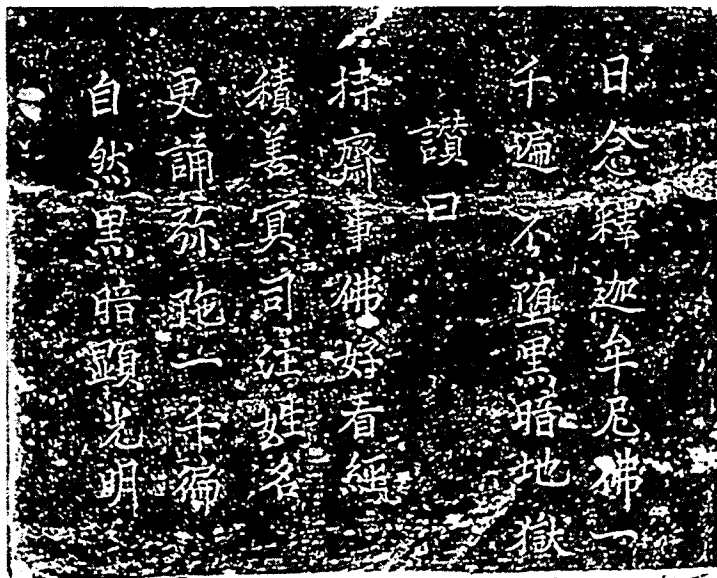 日念釋迦牟尼佛一
千遍不墮黑暗地獄
讚曰
持齋事佛好看經
積善冥司注姓名
更誦弥陁一千徧
自然黑暗顯光明